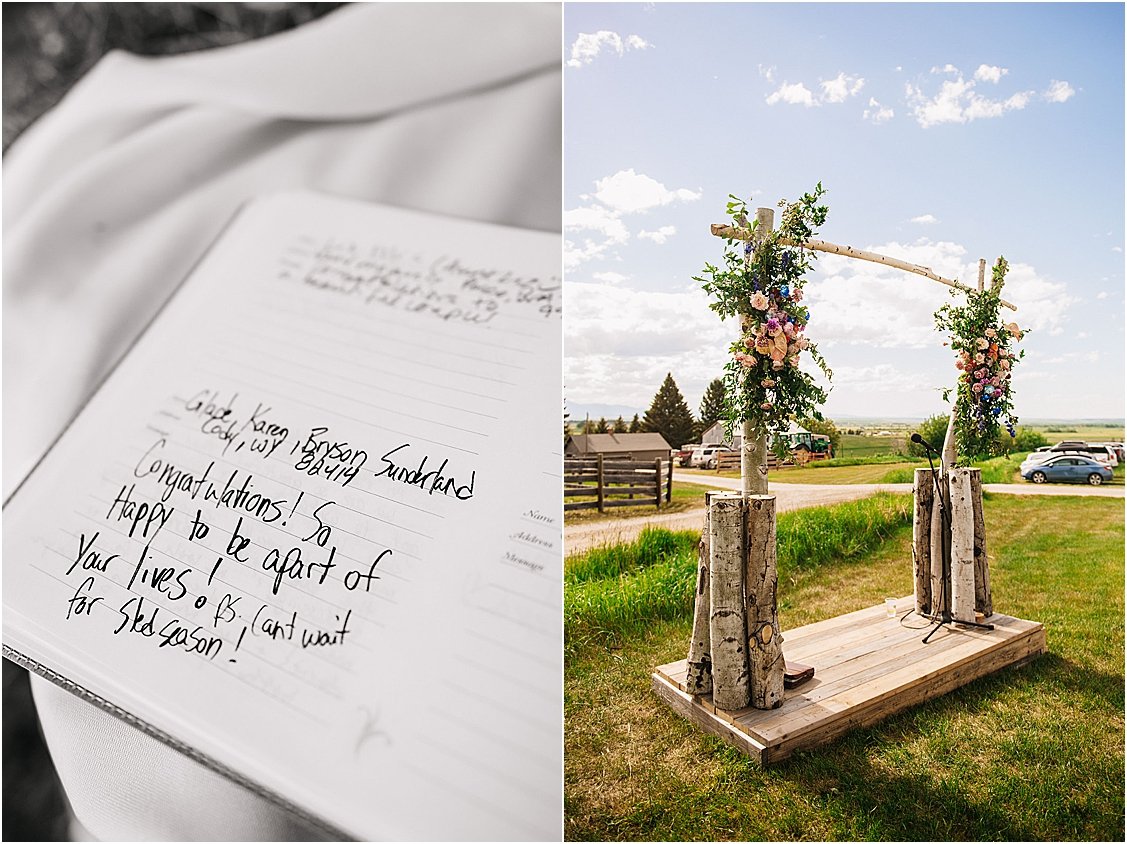 Glade, Karen, Bryson Sunderland
Cody, WY 82414
Congratulations! So
Happy to be apart of
Your lives! PS. Cant wait
for Sled season!
Name
Address
Message